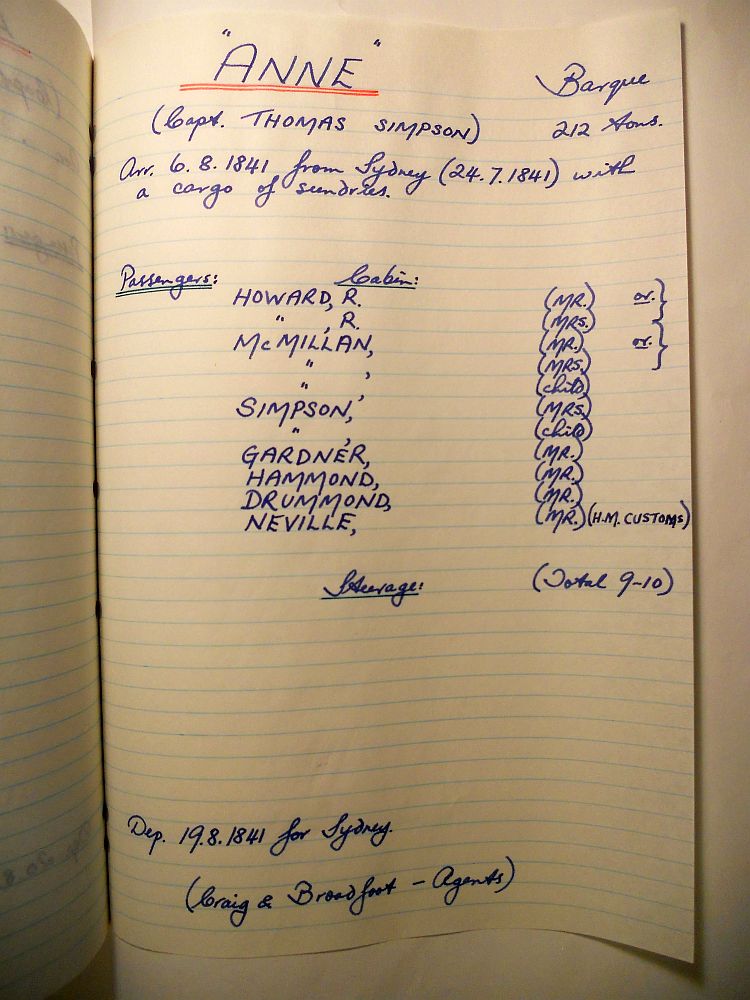 "ANNE"
Barque
(Capt. THOMAS SIMPSON) 212 tons.
Arr. 6.8.1841 from Sydney (24.7.1841) with
a cargo of sundries.
Passengers: Cabin:
HOWARD, R. (MR.) or. }
" , R. (MRS.)
McMILLAN, (MR.) or. }
" , (MRS.)
" , (child)
SIMPSON, (MRS.)
" , (child)
GARDNER, (MR.)
HAMMOND, (MR.)
DRUMMOND, (MR.)
NEVILLE, (MR.) (H.M. CUSTOMS)
Steerage: (Total 9-10)
Dep. 19.8.1841 for Sydney.
(Craig & Broadfoot - Agents)